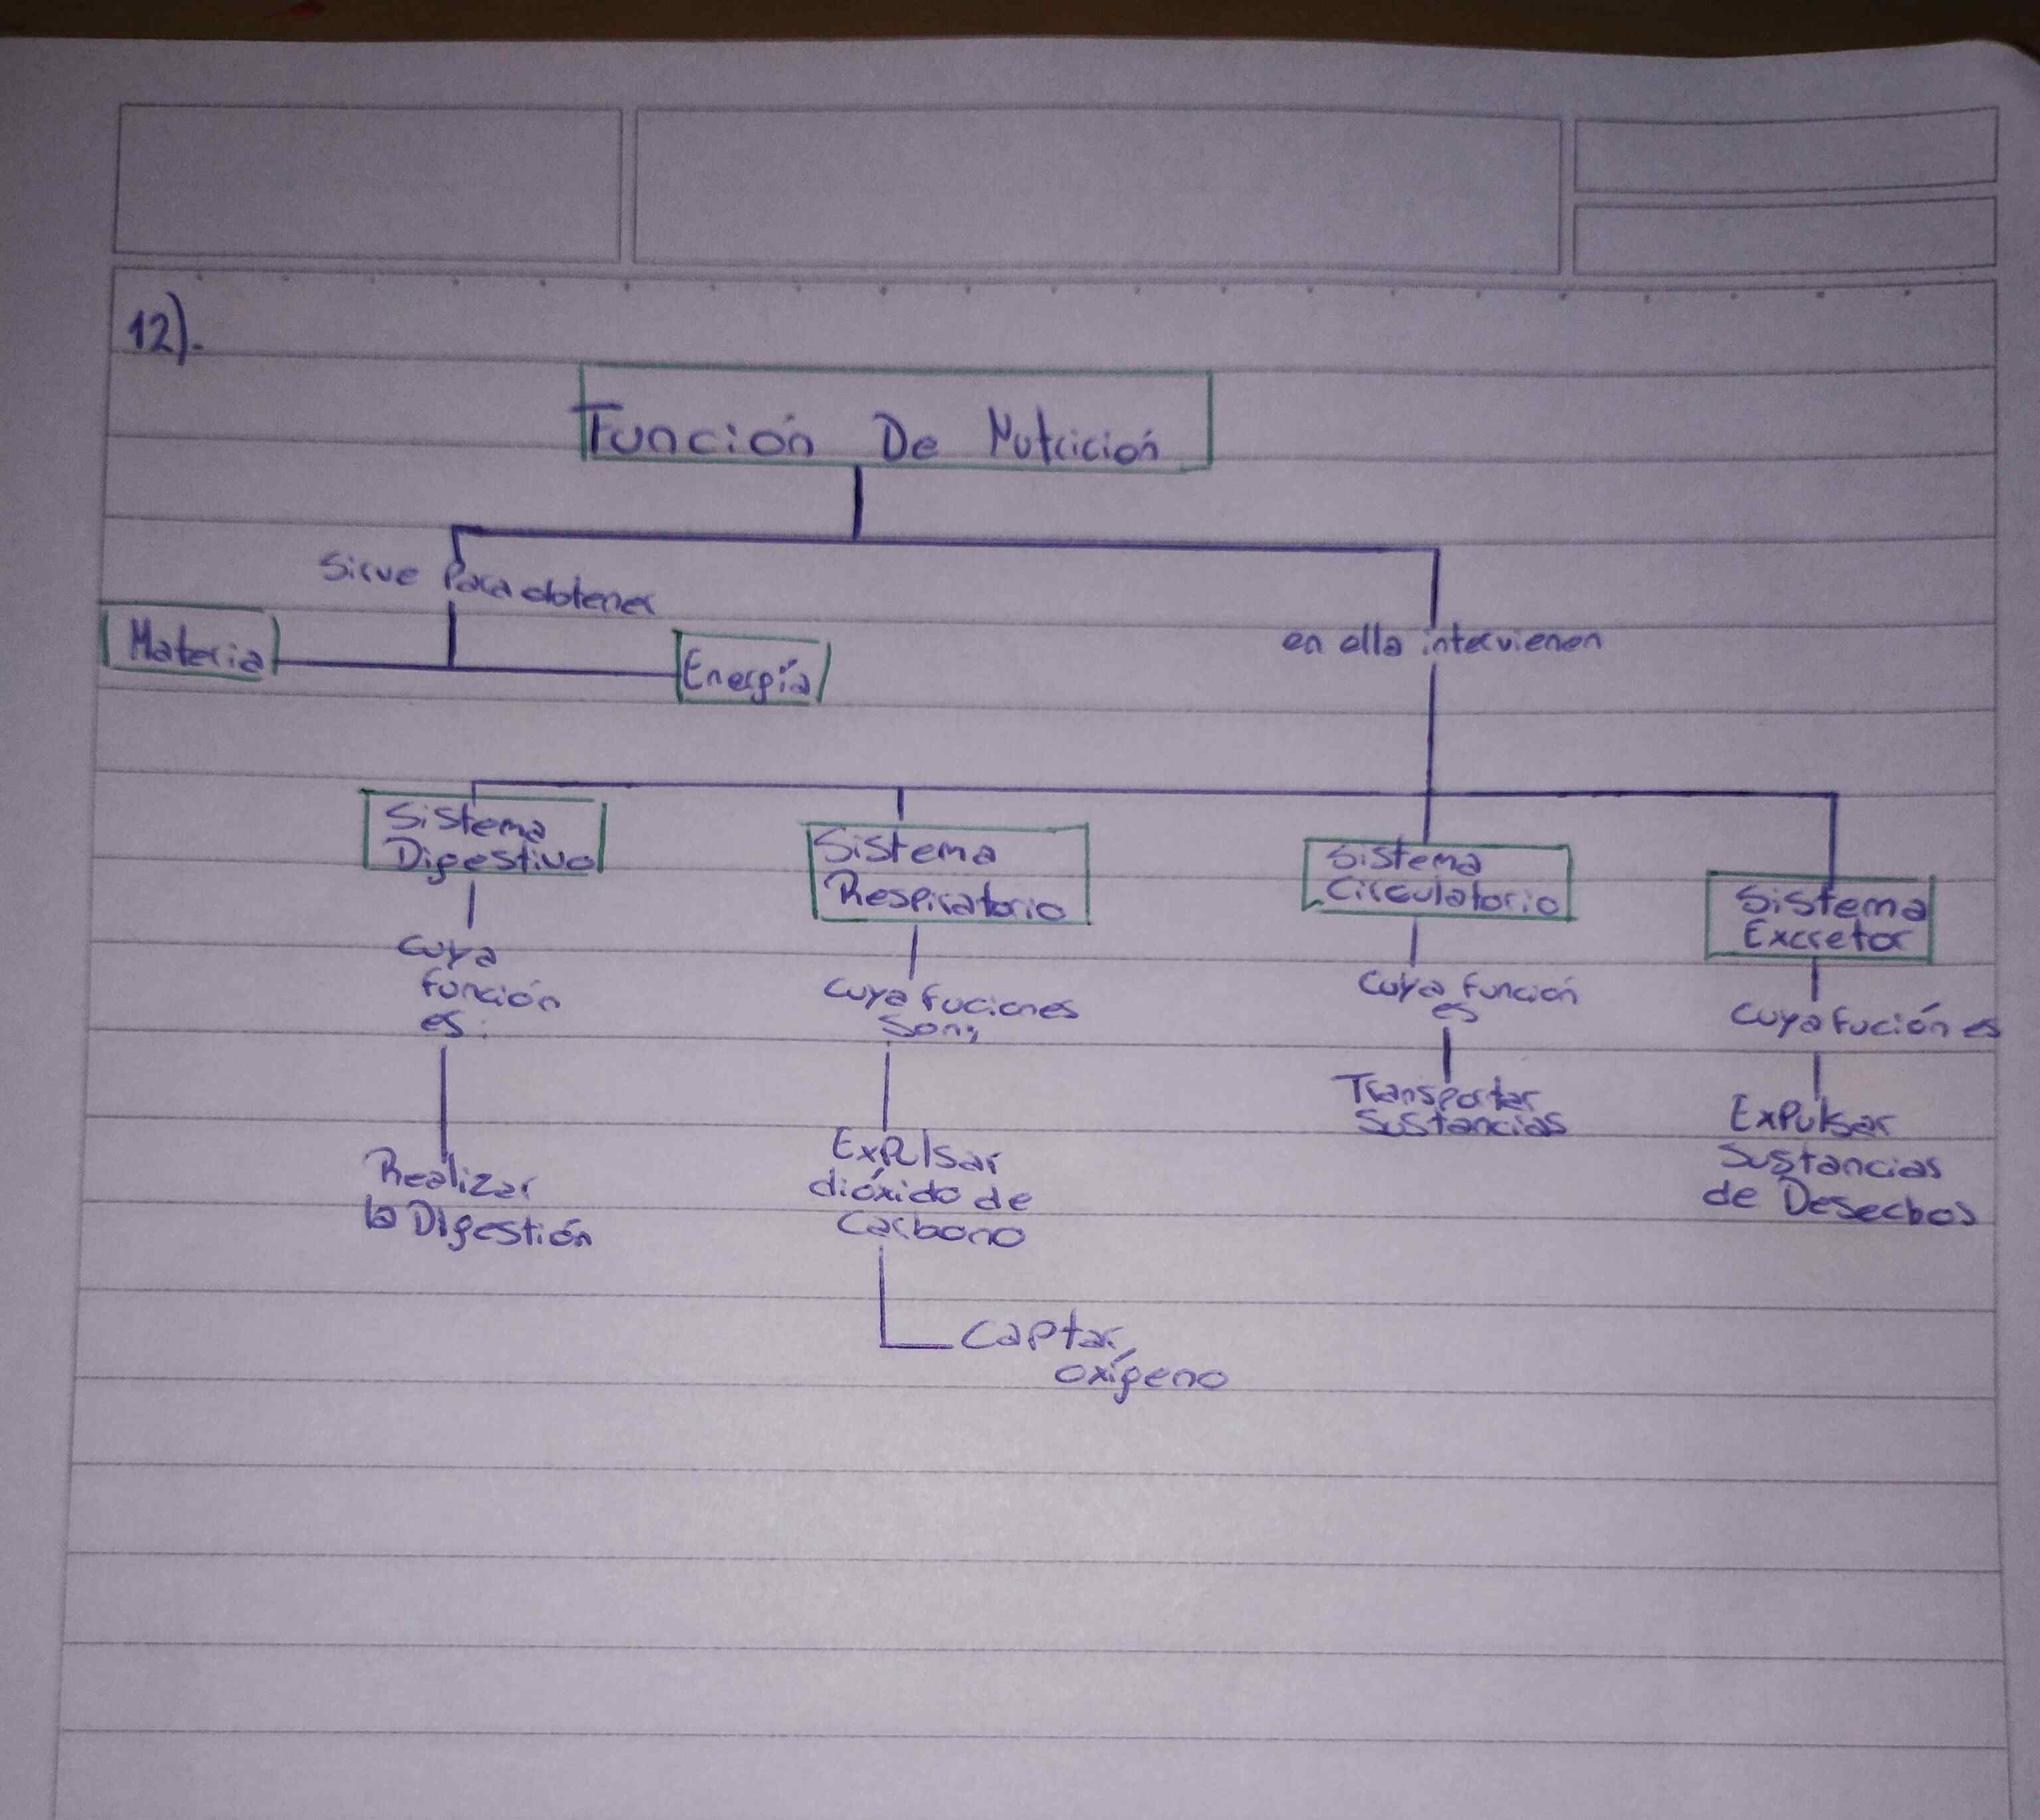 12).
Función De Nutrición
Sirve Para obtener
Materia
Energía
en ella intervienen
Sistema
Digestivo
Sistema
Respiratorio
Sistema
Circulatorio
Sistema
Excretor
cuya
función
es:
cuya fuciones
son;
cuya función
es
cuya fución es
Realizar
la Digestión
Expulsar
dióxido de
Carbono
Captar
oxígeno
Transportar
Sustancias
Expulsar
Sustancias
de Desechos